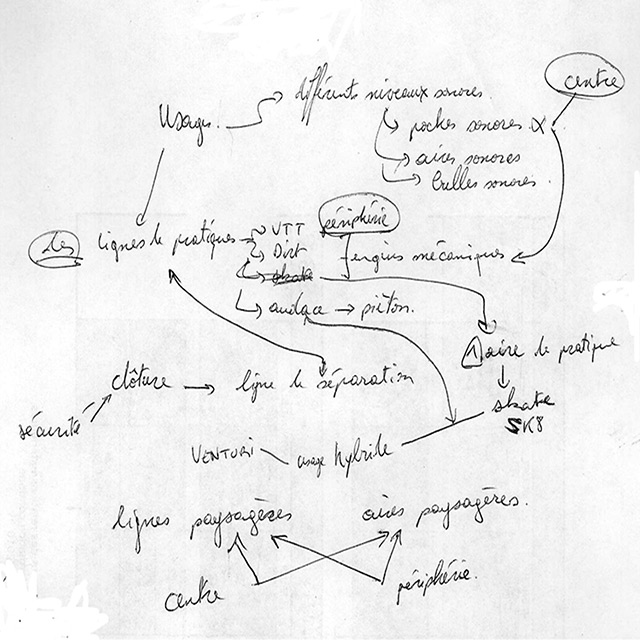 centre
différents niveaux sonores.
Usages.
poches sonores
aires sonores
bulles sonores.
périphérie
des lignes de pratiques
VTT
Dirt
skate
engins mécaniques
audace → piéton.
1 aire de pratique
clôture → ligne de séparation
skate
SK8
sécurité
VENTURI
usage hybride
lignes paysagères
aires paysagères.
centre
périphérie.